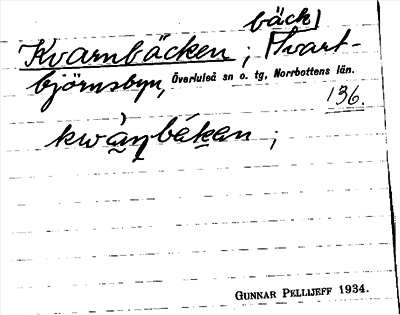 bäck)
Kvarnbäcken ; Svart-
björnsbyn, Överluleå sn o. tg, Norrbottens län.
136.
kwànbéken ;
GUNNAR PELLIJEFF 1934.